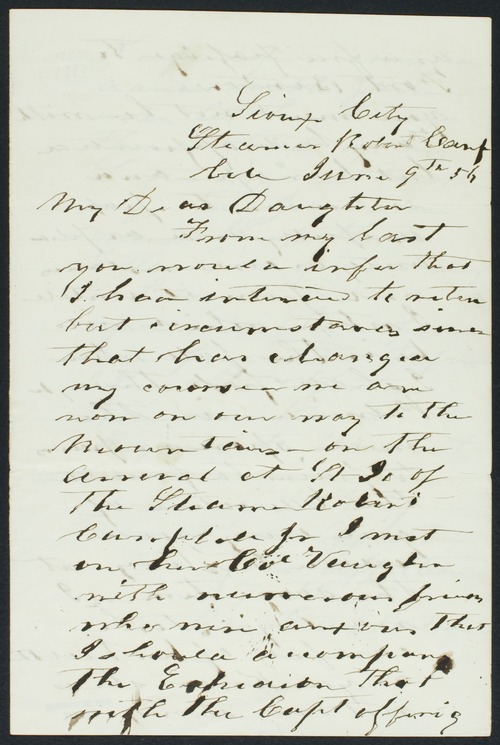 Sioux City
Steamer Robert Camp
bell June 9th 56
My Dear Daughter
From my last
you would infer that
I had intended to return
but circumstances since
that has changed
my course we are
now on our way to the
Mountains - on the
arrival at St Jo of
the Steamer Robert
Campbell Jr I met
on her Col Vaughn
with numerous friends
who were anxious that
I should accompany
the Expedition that
with the Capt offering